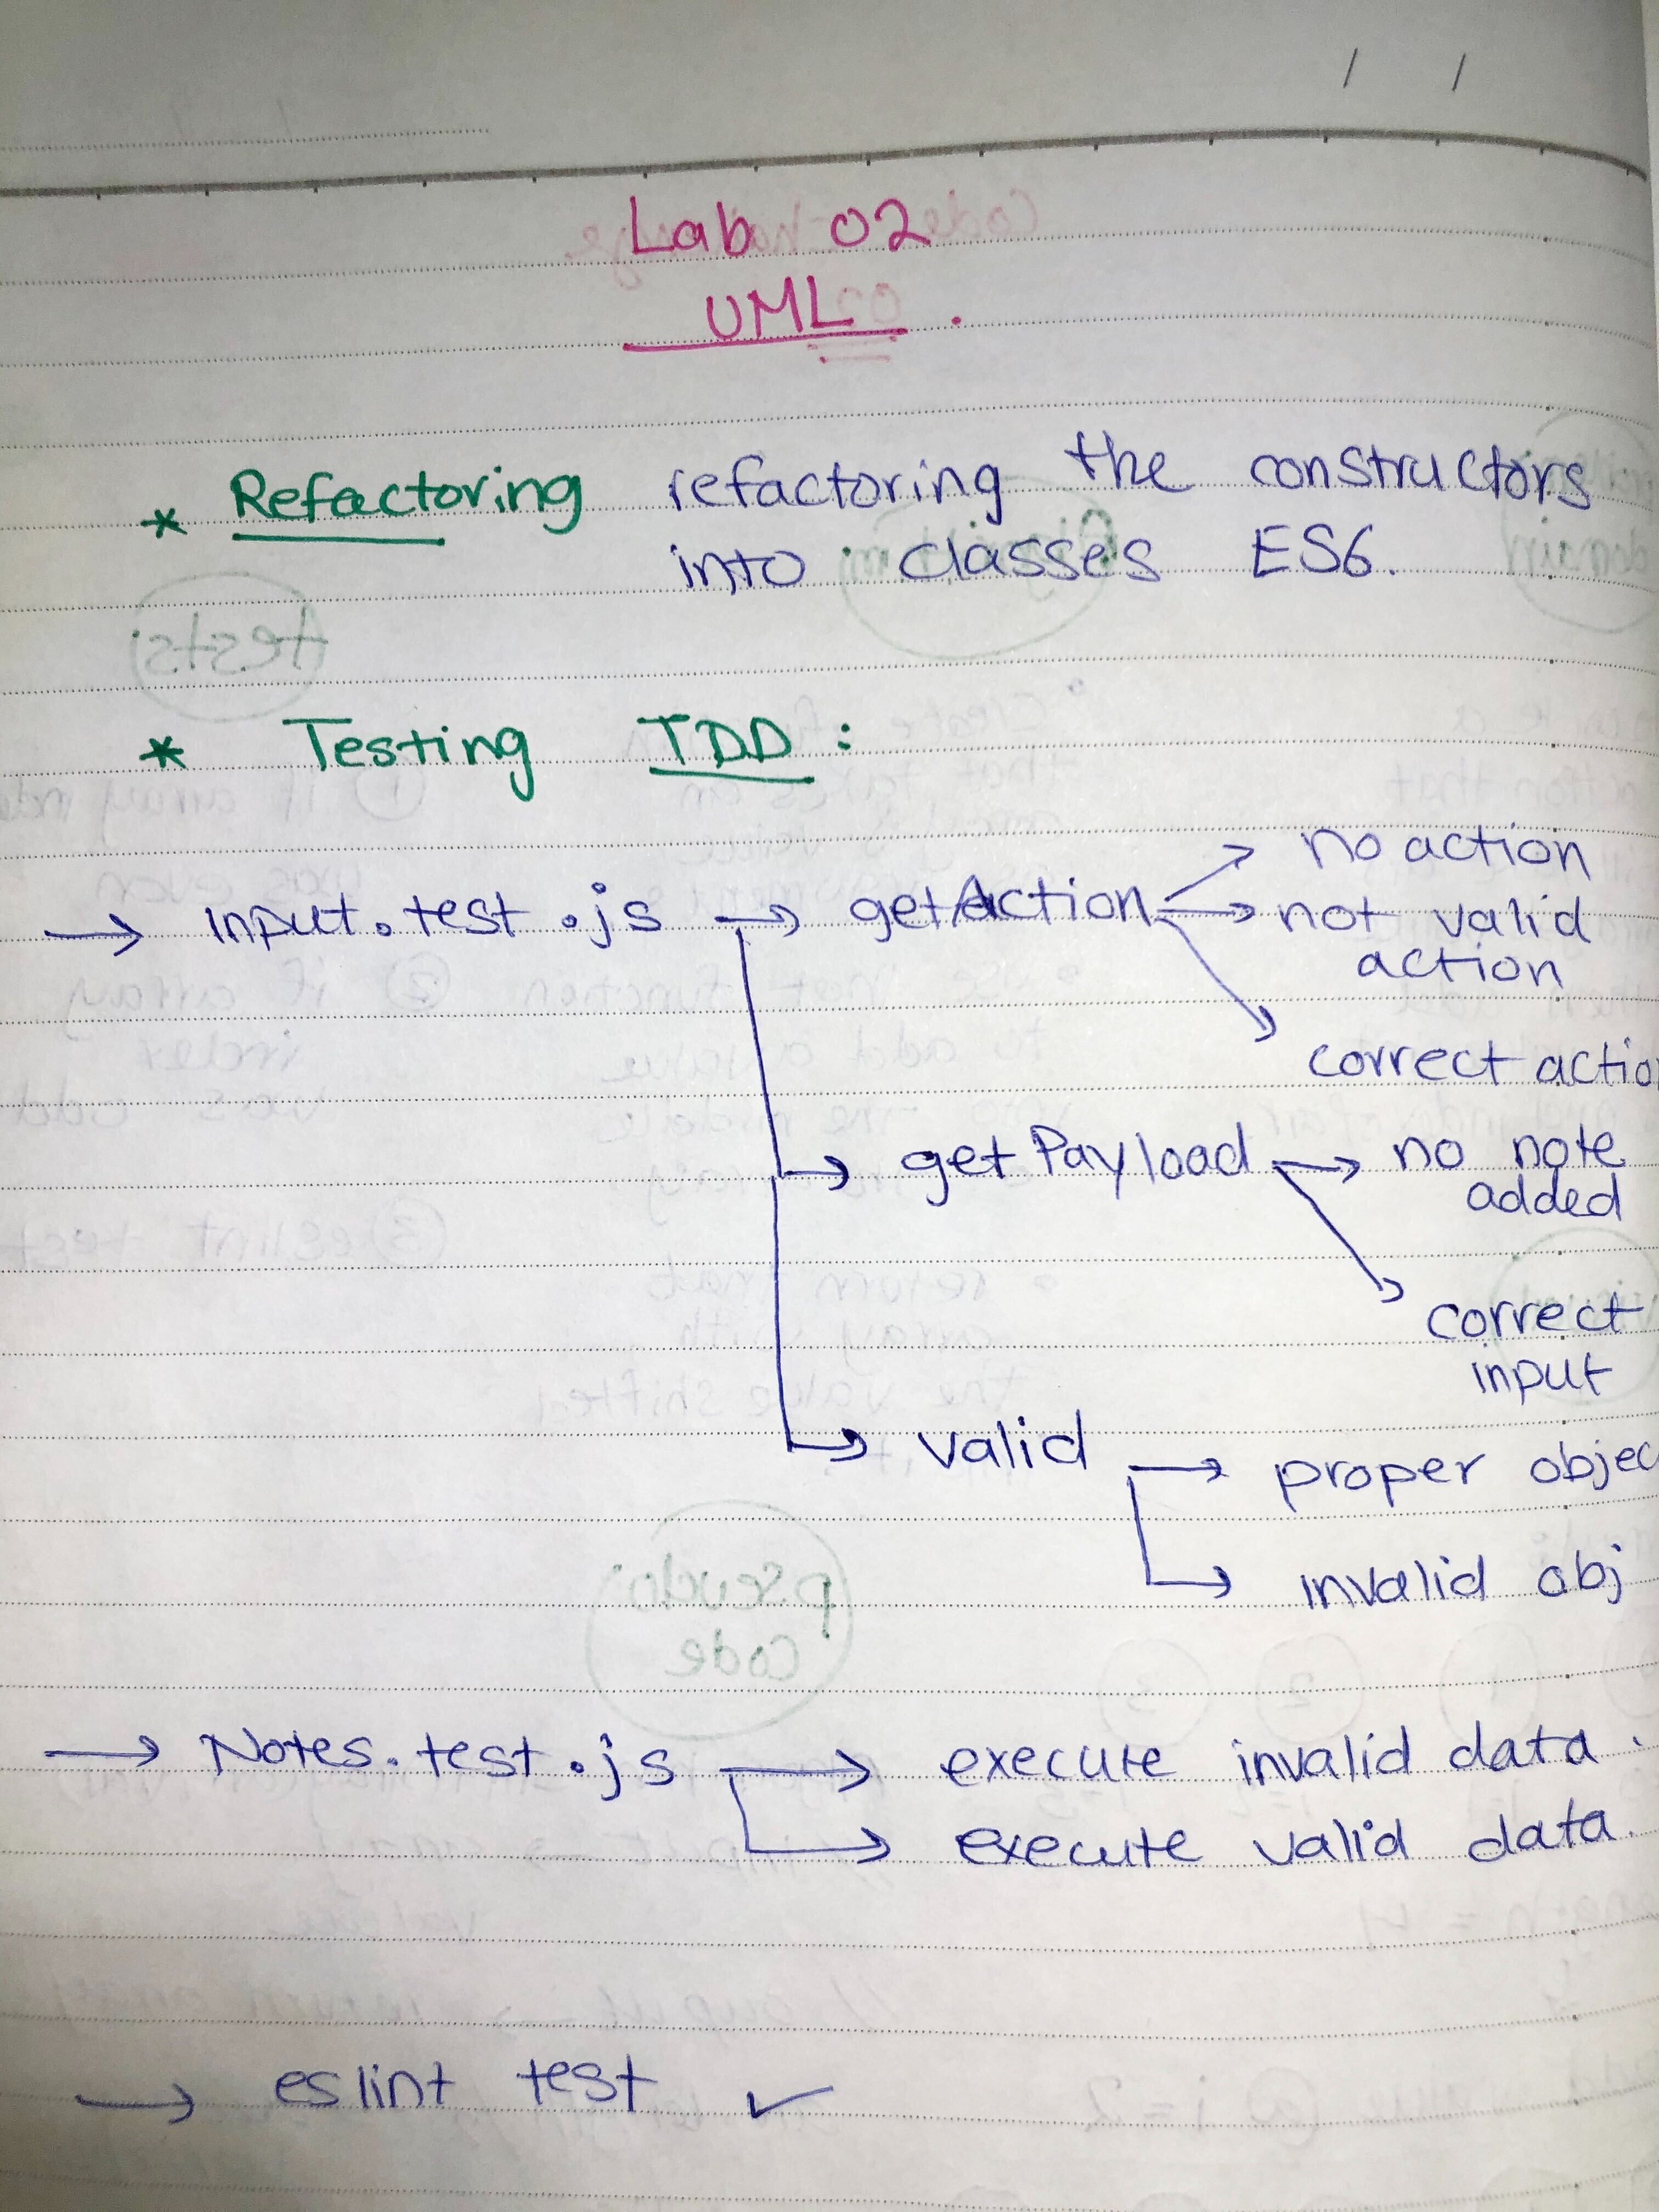 Lab 02
UML.
* Refactoring refactoring the constructors
into classes ES6.
* Testing TDD :
→ input.test.js → getAction → no action
→ not valid
action
→ correct actio
→ getPayload → no note
added
→ correct
input
→ valid → proper objec
→ invalid obj
→ Notes.test.js → execute invalid data.
→ execute valid data.
→ eslint test ✓